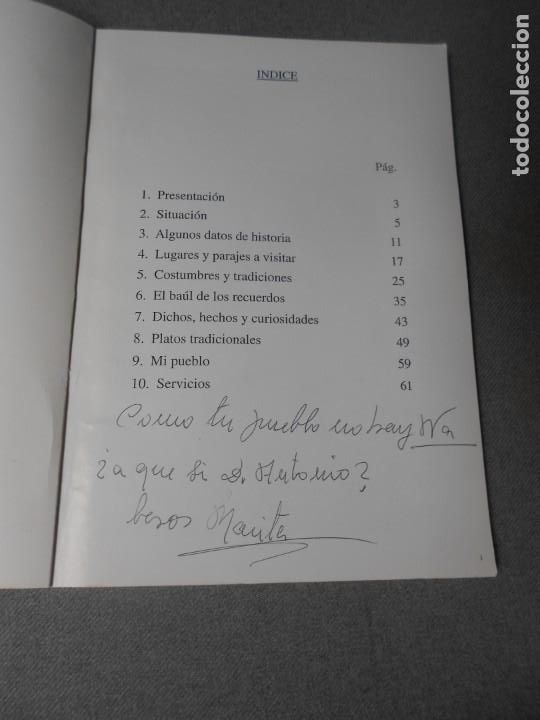 INDICE
Pág.
1. Presentación 3
2. Situación 5
3. Algunos datos de historia 11
4. Lugares y parajes a visitar 17
5. Costumbres y tradiciones 25
6. El baúl de los recuerdos 35
7. Dichos, hechos y curiosidades 43
8. Platos tradicionales 49
9. Mi pueblo 59
10. Servicios 61
Como tu pueblo no hay
¿a que si D. Antonio?
besos
1
todocoleccion